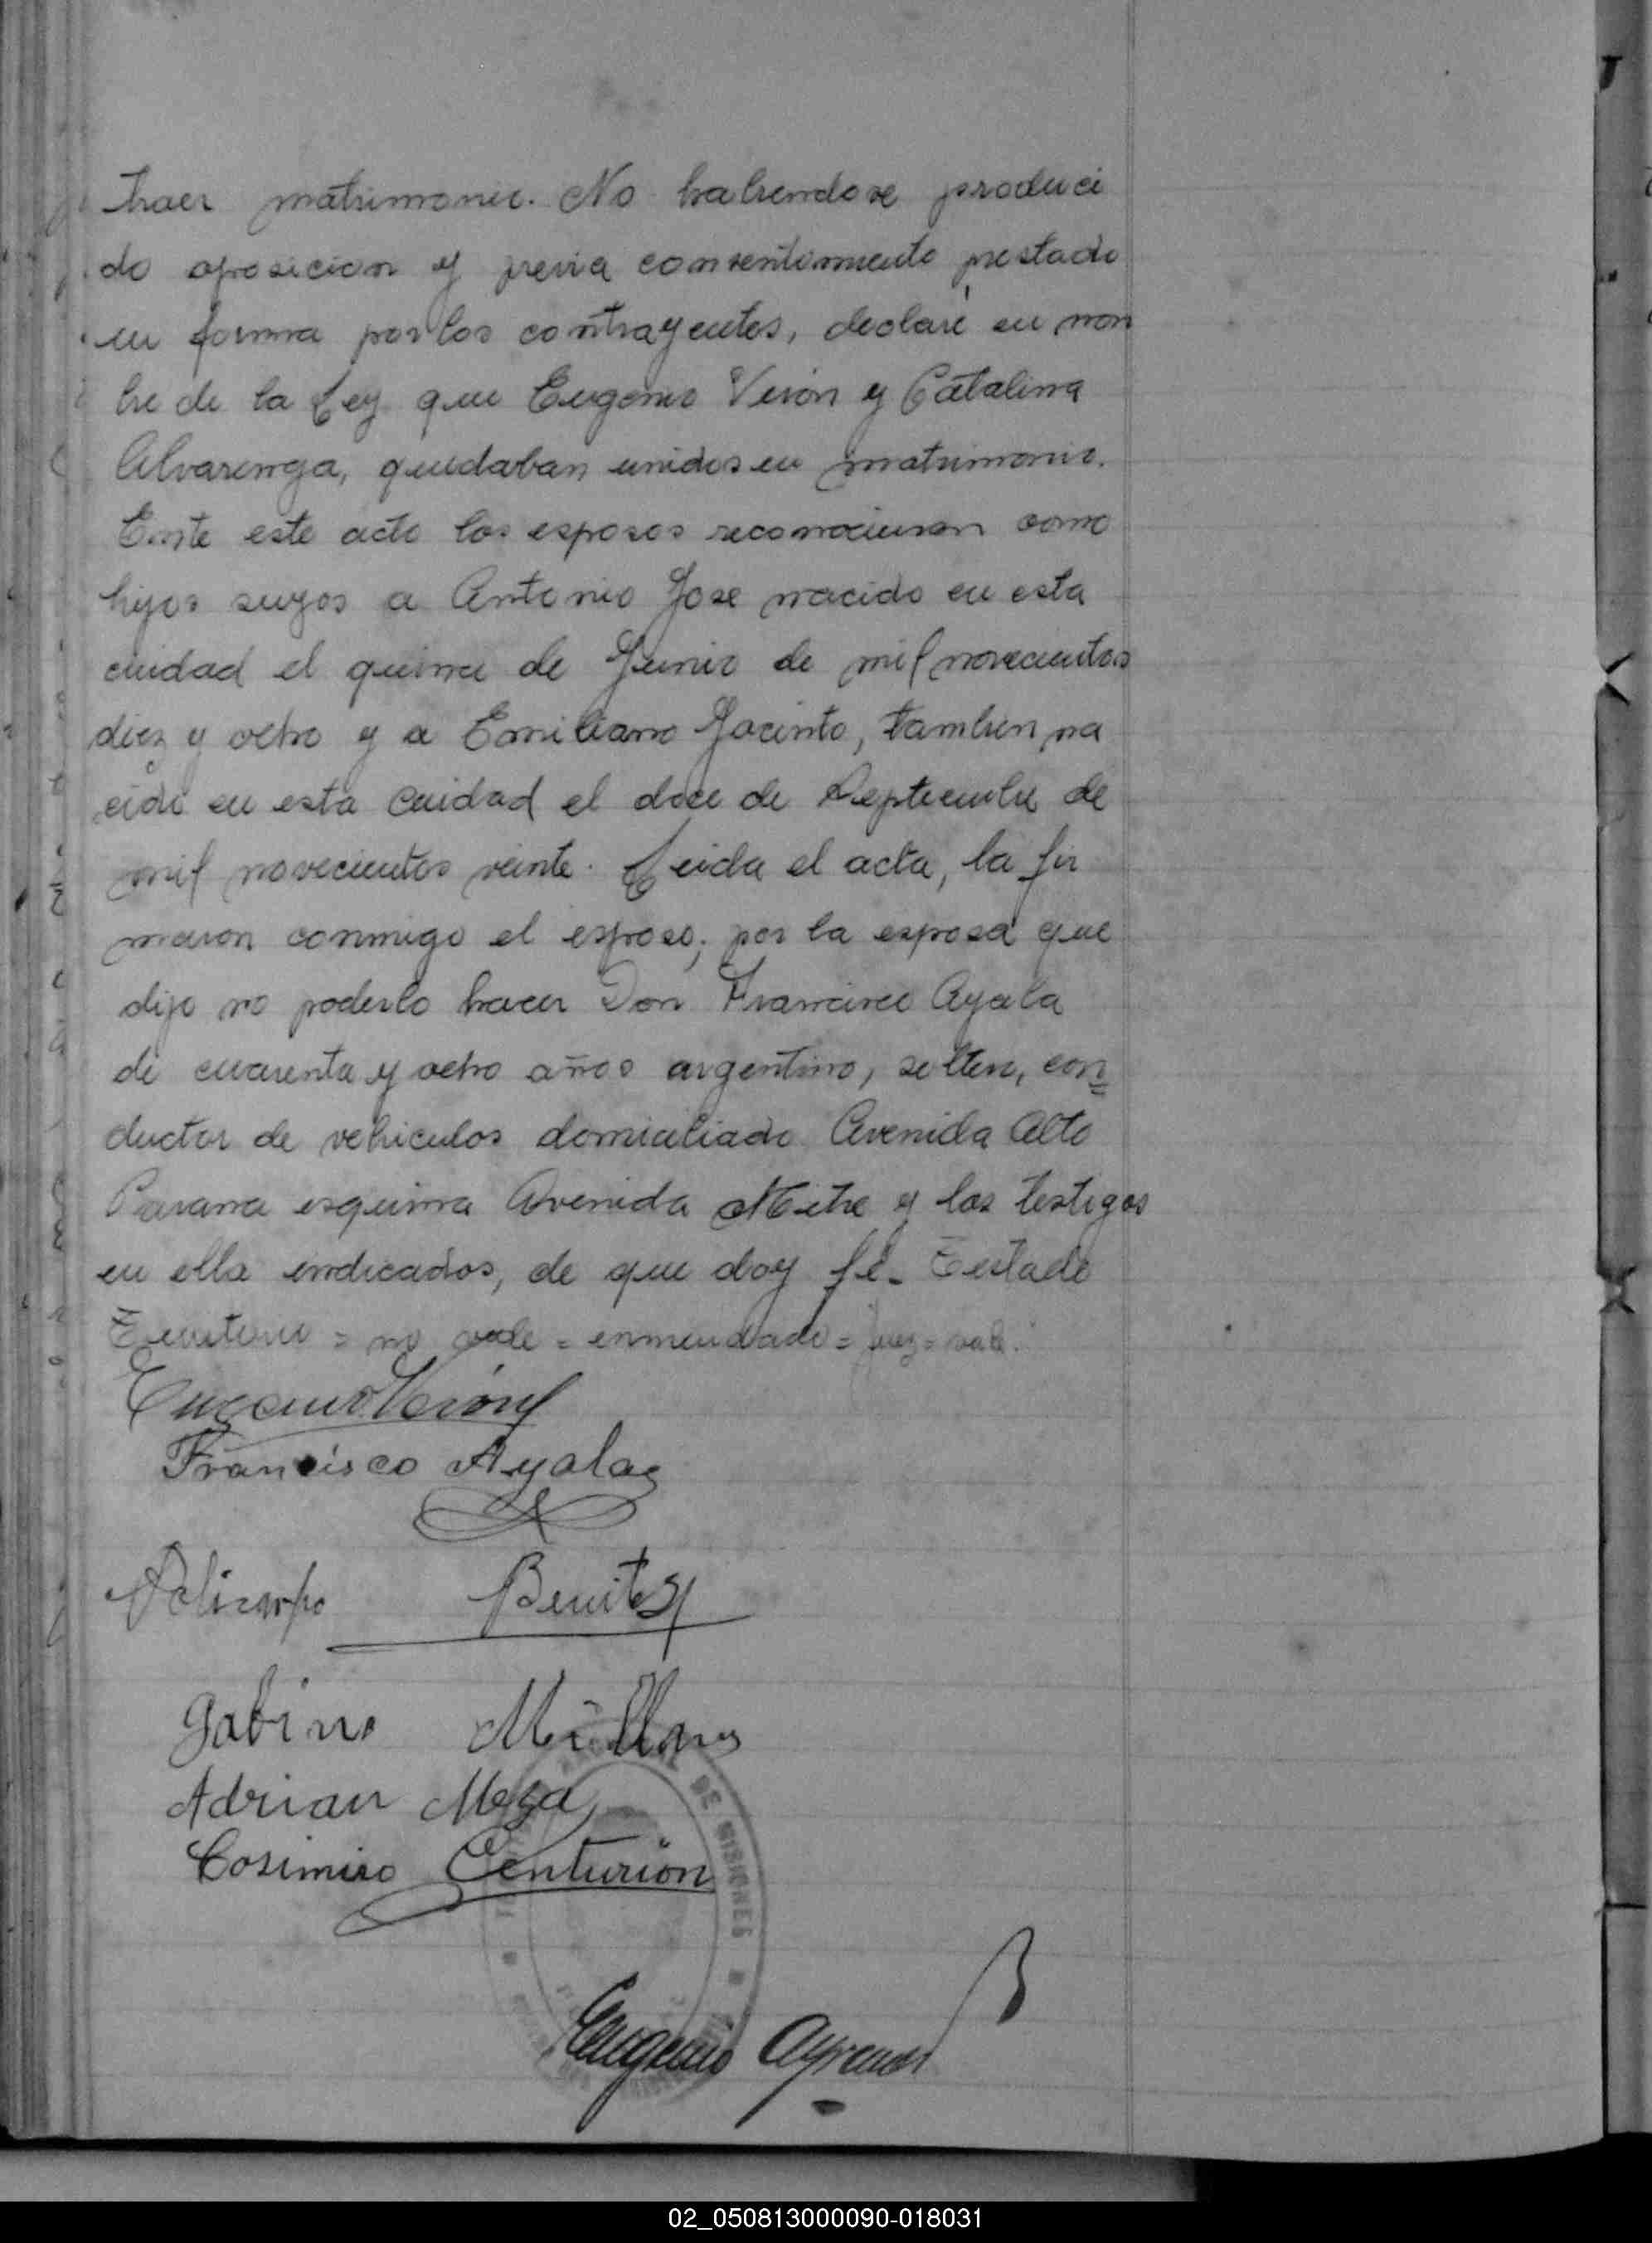 traer matrimonio. No habiendose produci
do oposicion y previa consentimiento prestado
en forma por los contrayentes, declaré en nom
bre de la Ley que Eugenio Verón y Catalina
Alvarenga, quedaban unidos en matrimonio.
este acto los esposos reconocieron como
hijos suyos a Antonio Jose nacido en esta
ciudad el quince de Junio de mil novecientos
diez y ocho y a Emiliano Jacinto, tambien na
cido en esta ciudad el doce de Septiembre de
mil novecientos veinte. Leida el acta, la fir
maron conmigo el esposo; por la esposa que
dijo no poderlo hacer Don Francisco Ayala
de cuarenta y ocho años argentino, soltero, con=
ductor de vehiculos domiciliado Avenida Alto
Parana esquina Avenida Mitre y los testigos
en ella indicados, de que doy fé. Testado
= no vale = enmendado = juez = vale.
Eugenio Verón
Francisco Ayala
Policarpo Benitez
Gabino
Adrian Meza
Casimiro Centurión
DE MISIONES
Eugenio
02_050813000090-018031